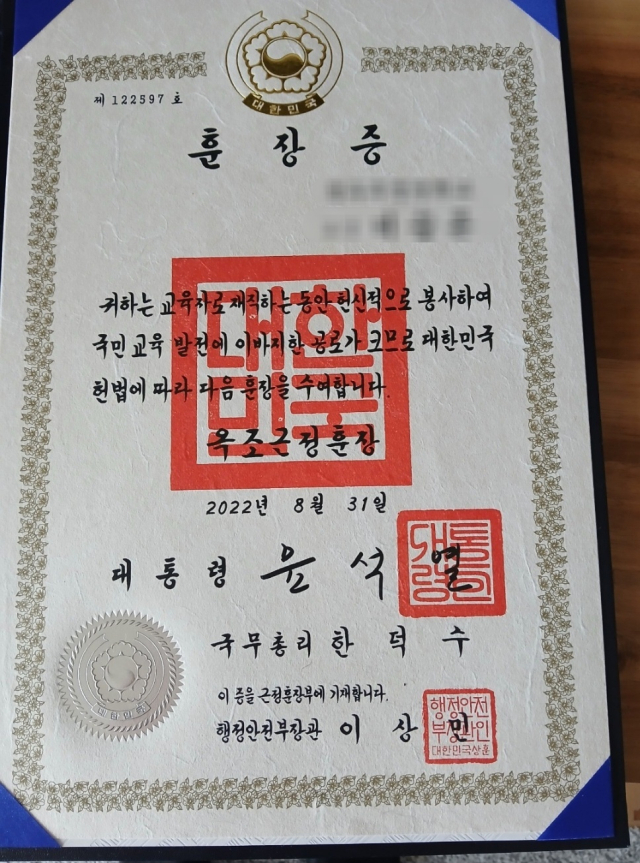 대한민국
제 122597 호
훈장증
귀하는 교육자로 재직하는 동안 헌신적으로 봉사하여
국민 교육 발전에 이바지한 공로가 크므로 대한민국
헌법에 따라 다음 훈장을 수여합니다.
대한민국
옥조근정훈장
2022년 8월 31일
대통령 윤석열
대통령인
국무총리 한덕수
이 증을 근정훈장부에 기재합니다.
행정안전부장관 이상민
행정안전
부장관인
대한민국상훈
대한민국